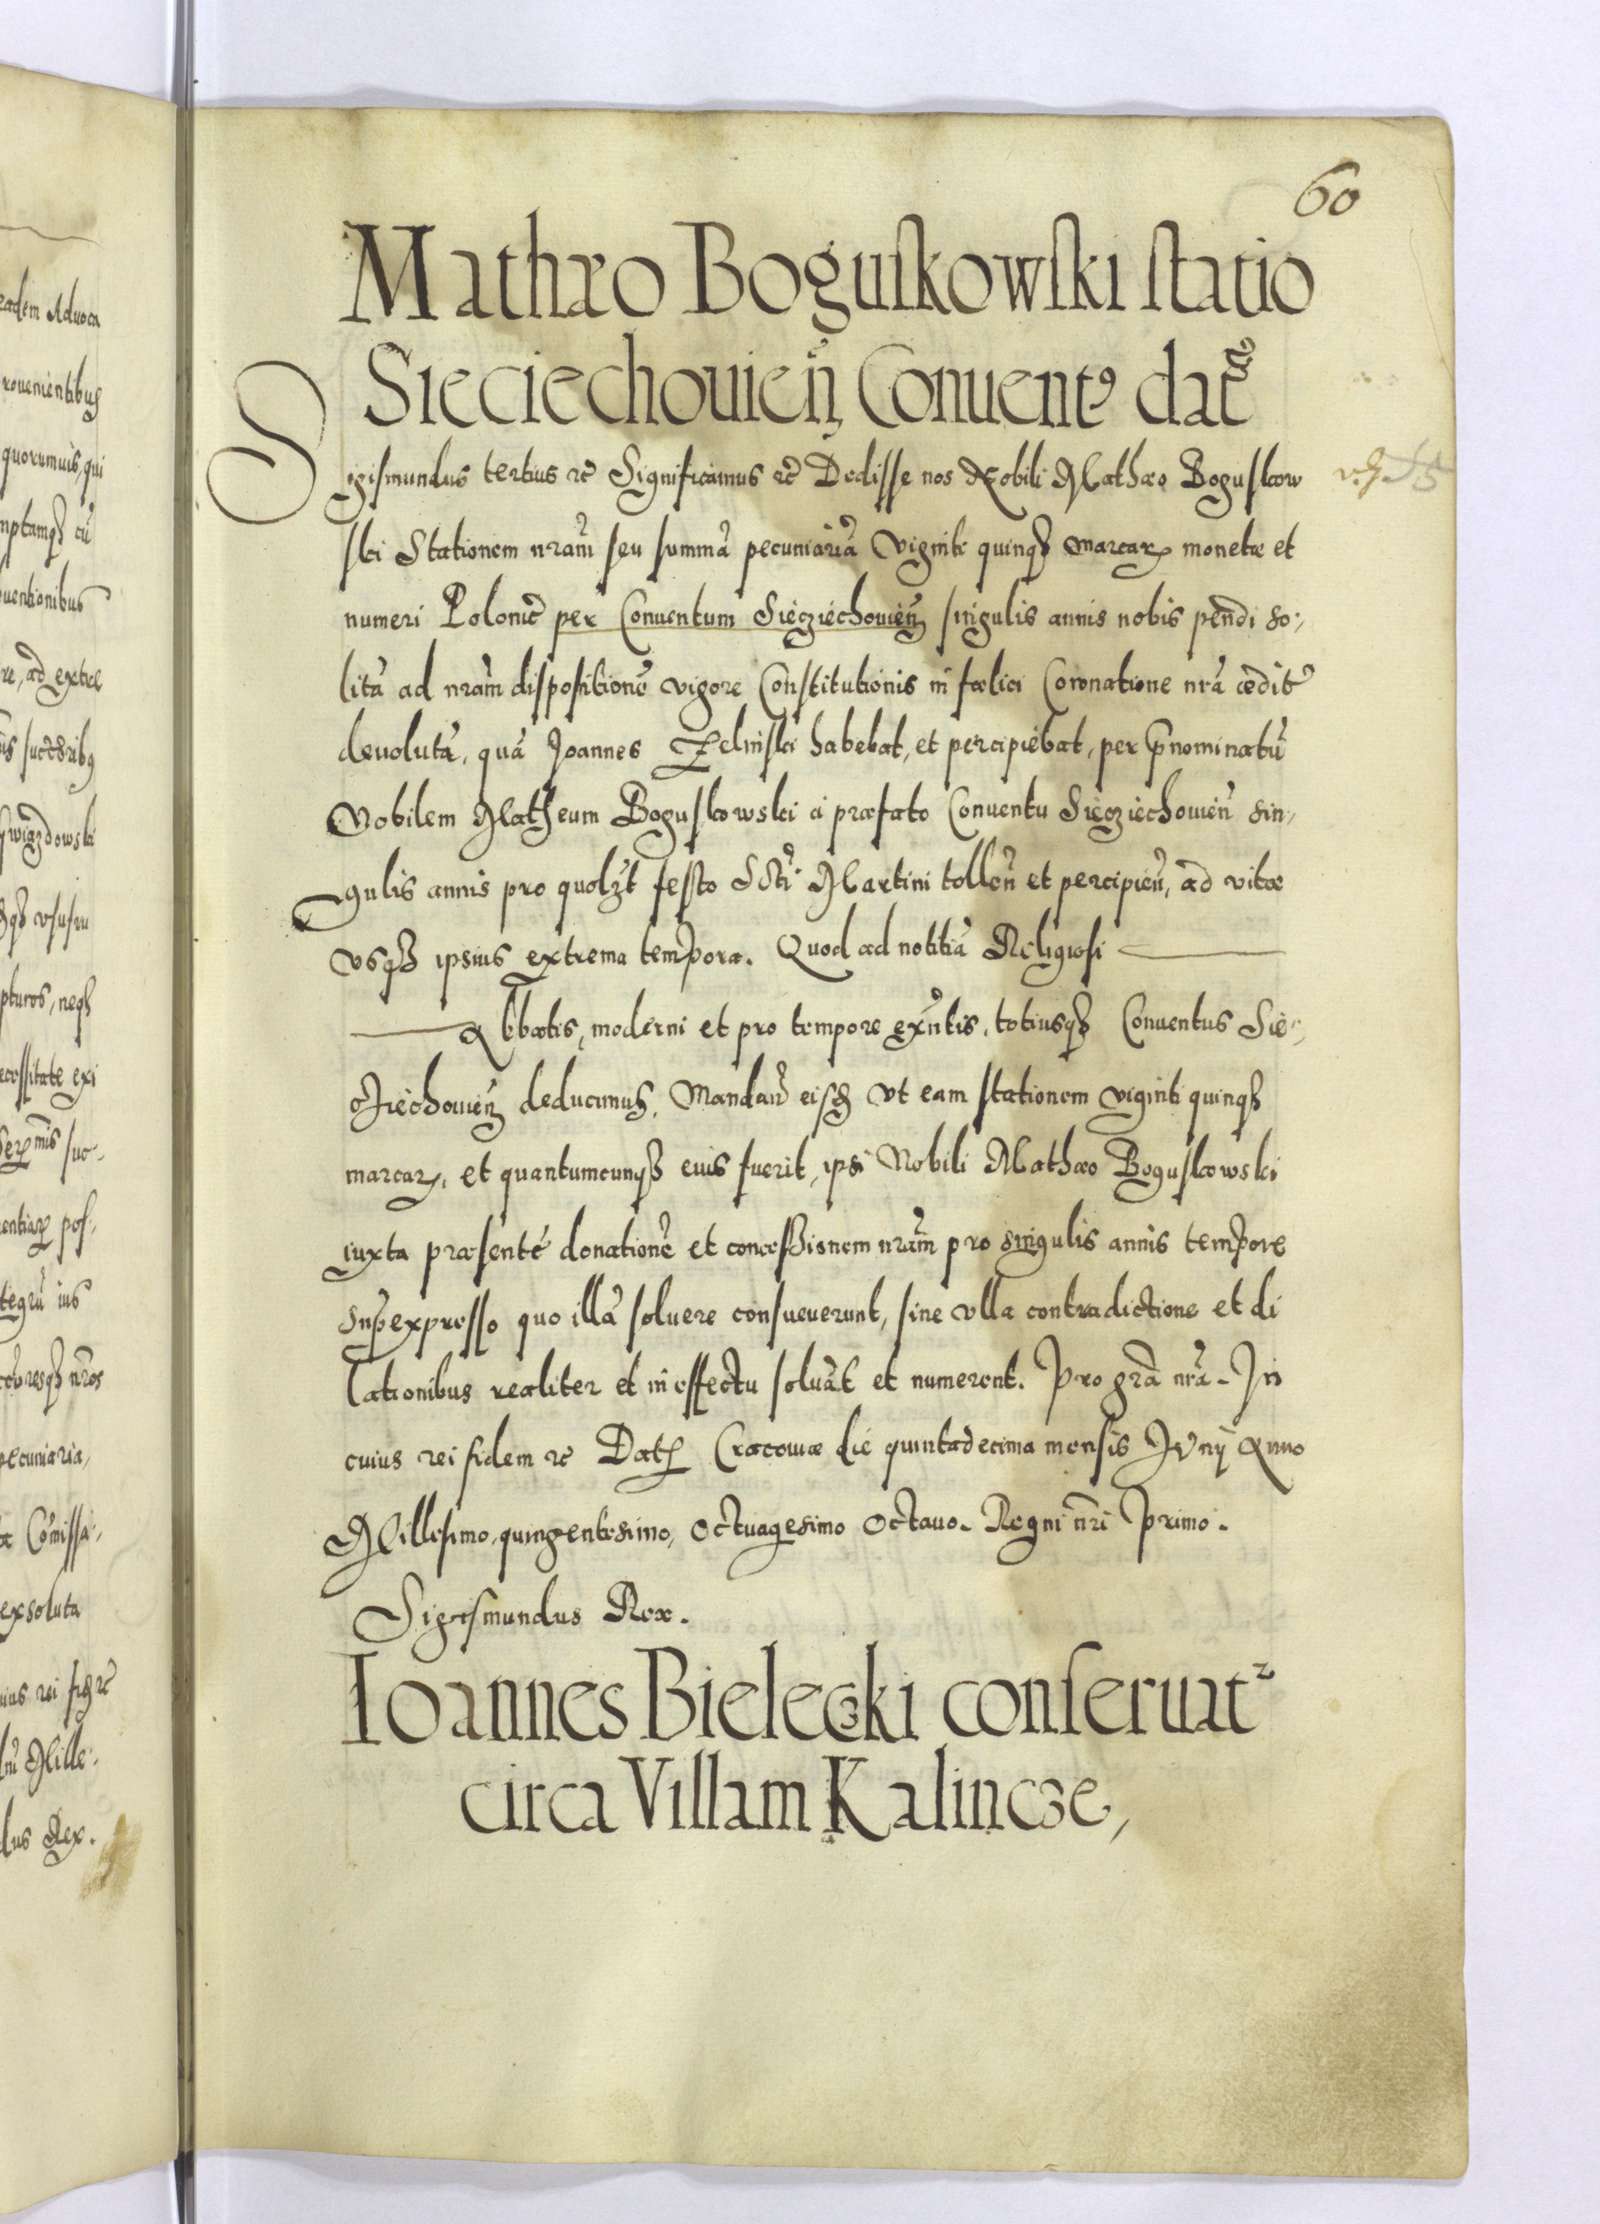 60
Mathæo Boguskowski statio
Sieciechouień Conuent9 dat
Sigismundus tertius rc̃ Significamus ec̃ Dedisse nos Nobili Mathæo Boguskow
ski Stationem nram̃ seu summã pecuniariã Viginti quinq3 marcar monetæ et
numeri Polonic̃ per Conuentum Siecziechouień singulis annis nobis pendi so,
litã ad nram̃ dispositionẽ vigore Constitutionis in fœlici Coronatione nrã ædit
deuolutã, quã Joannes Zelinski habebat, et percipiebat, per p̃nominatũ
Nobilem Matheum Boguskowski a præfato Conuentu Siecziechouień sin,
gulis annis pro quolz̃t festo Scti Martini tolleñ et percipieñ, ad vitæ
vsq3 ipsius extrema tempora. Quod ad notitiã Religiosi
Abbatis, moderni et pro tempore exñtis, totiusq3 Conuentus Sie,
cziechouień deducimus, Mandañ eisd ut eam stationem viginti quinq3
marcar, et quantumcunq3 euis fuerit, ipsi Nobili Mathæo Boguskowski
iuxta præsentẽ donationẽ et concessionem nram̃ pro singulis annis tempore
supexpresso quo illã soluere consueuerunt, sine vlla contradictione et di
lationibus realiter et in effectu soluãt et numerent. Pro grã nrã. In
cuius rei fidem rc̃ Dat Cracouiæ die quintadecima mensis Junÿ Anno
Millesimo, quingentesimo, Octuagesimo Octauo. Regni nr̃i Primo.
Sigismundus Rex.
Ioannes Bieleczki conseruat
circa Villam Kalincze,
radem Aduoca
rouenientibus
quorumuis, qui
mptamq3 cũ
uentionibus
re, ad extre
Gwiazdowski
q3 vsufru
pturos, neq3
ecessitate exi
tegrũ ius
pecuniaria,
Com̃issa,
exsoluta
Mille,
dus Rex.